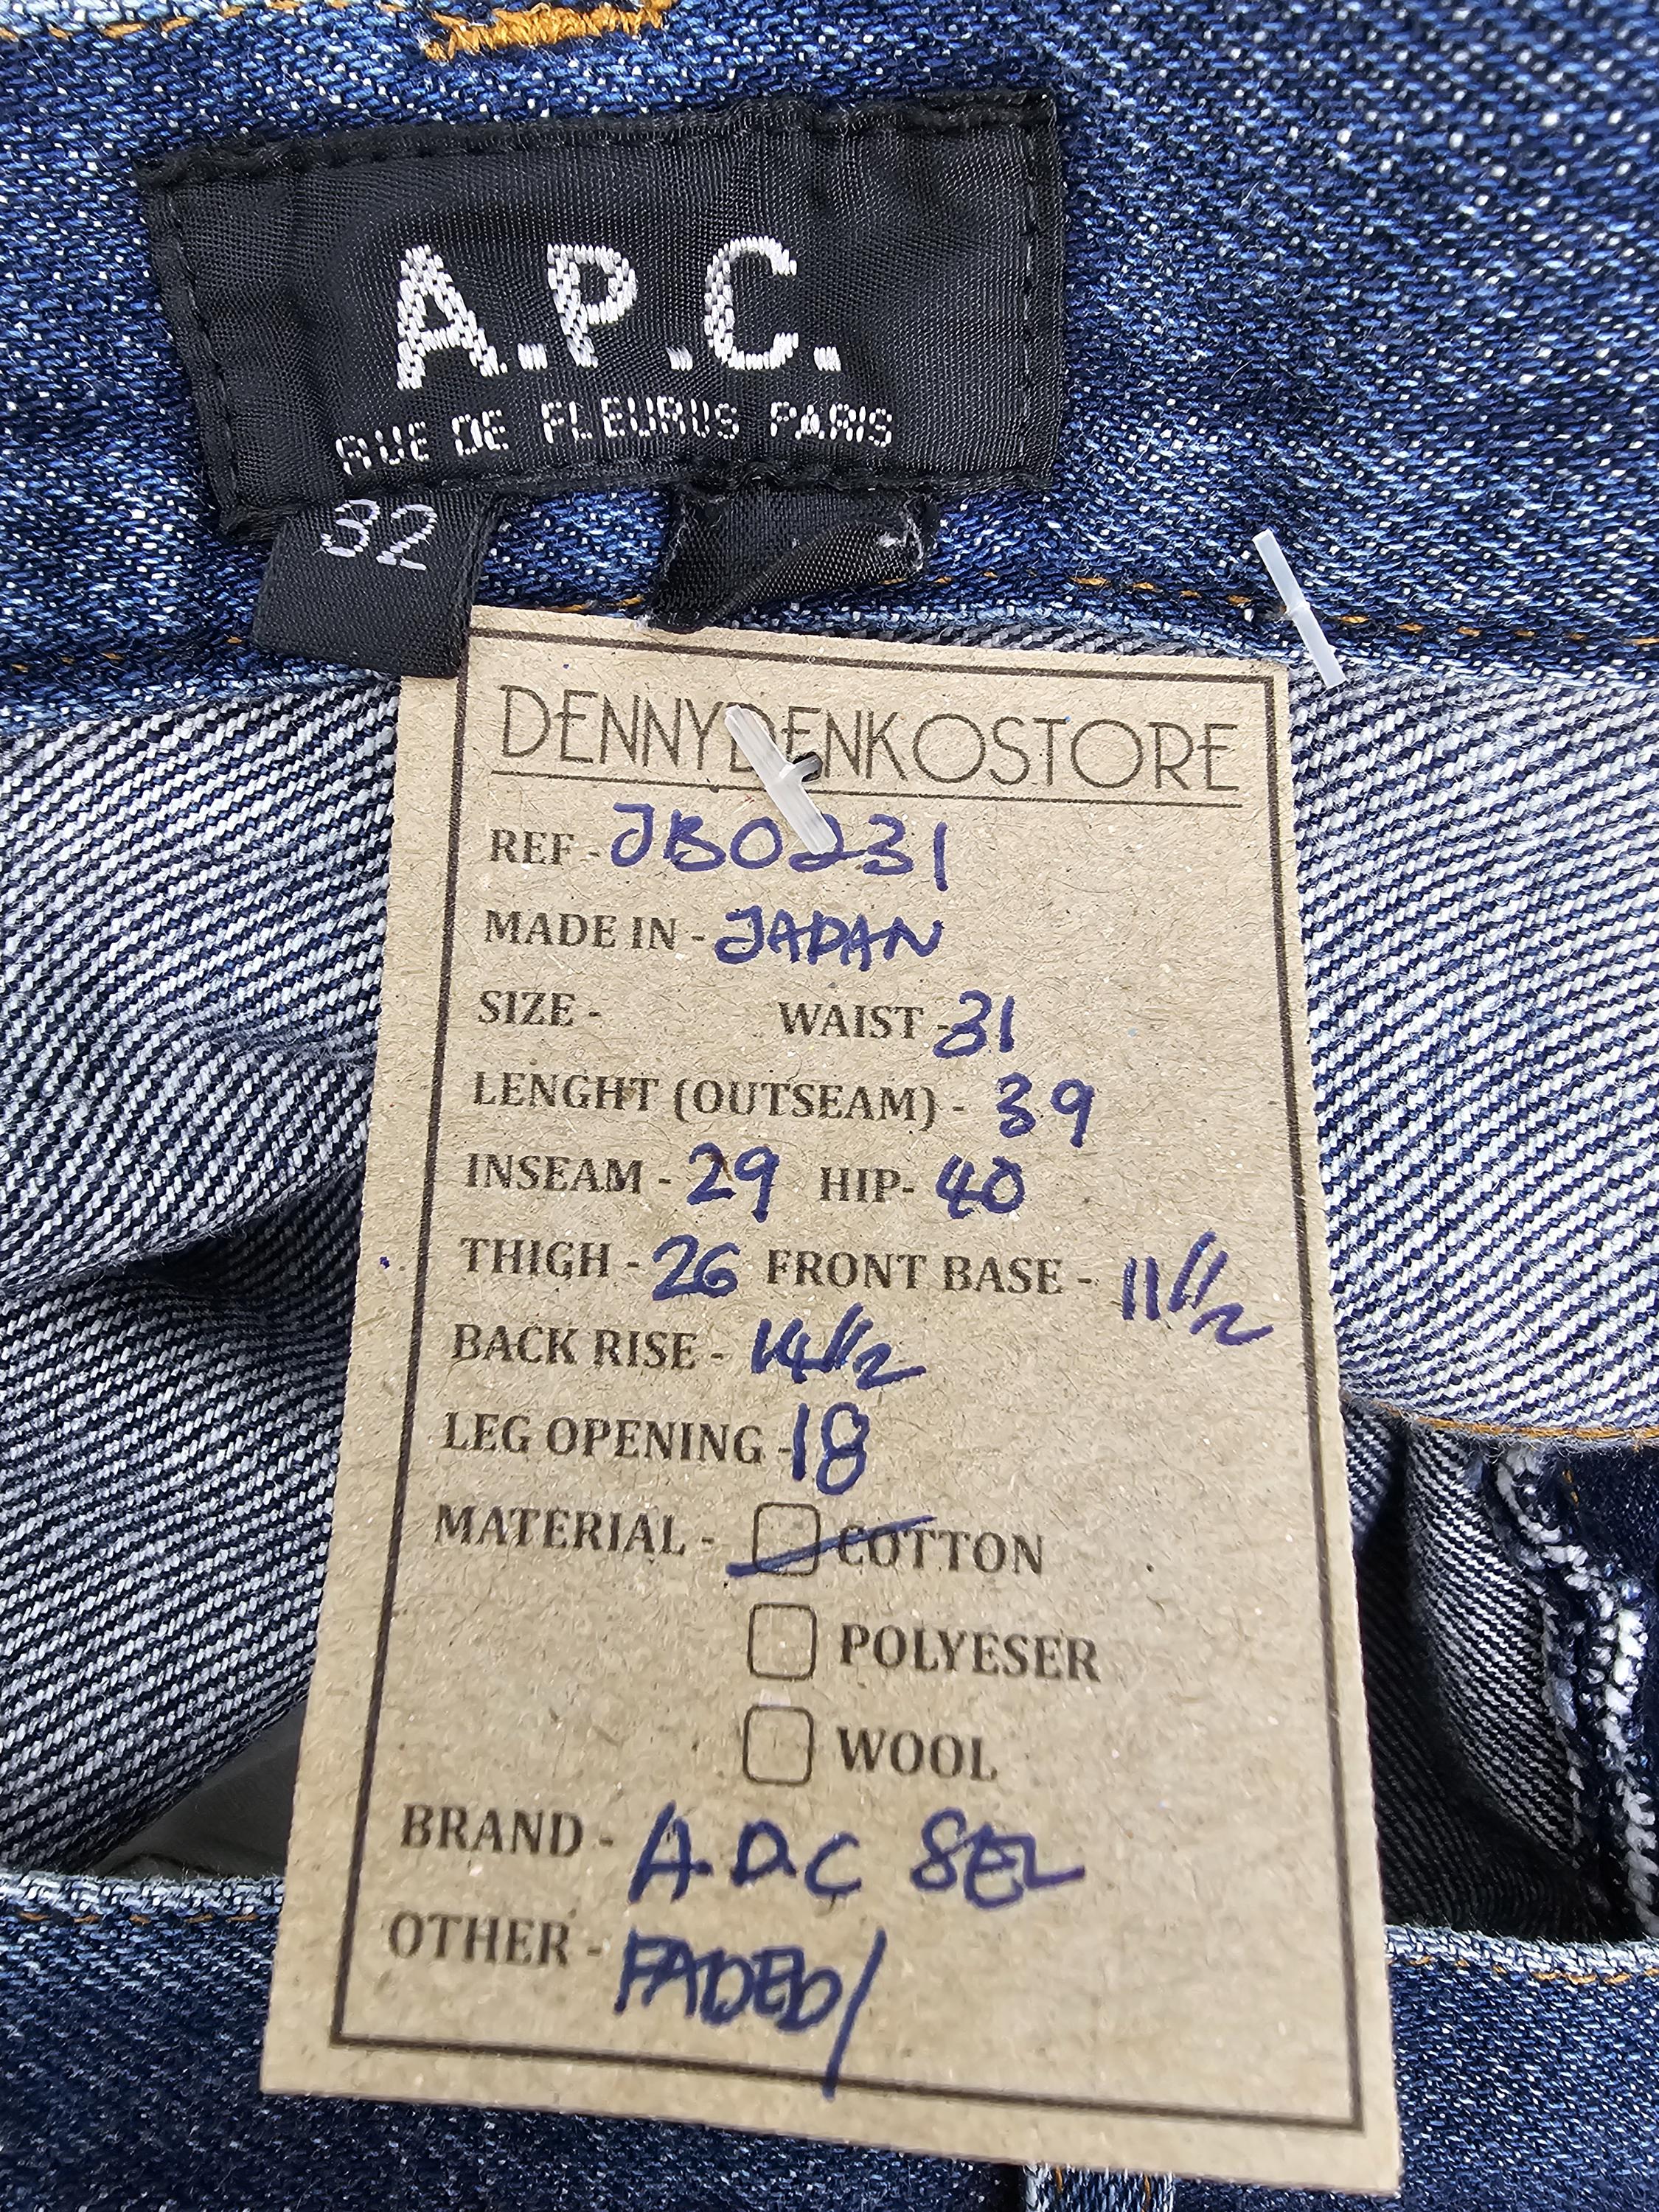 A.P.C.
RUE DE FLEURUS PARIS
32
DENNYDENKOSTORE
REF - JB0231
MADE IN - JAPAN
SIZE - WAIST - 31
LENGHT (OUTSEAM) - 39
INSEAM - 29 HIP- 40
THIGH - 26 FRONT BASE - 11 1/2
BACK RISE - 14 1/2
LEG OPENING - 18
MATERIAL - COTTON
POLYESER
WOOL
BRAND - A.P.C SEL
OTHER - FADED/